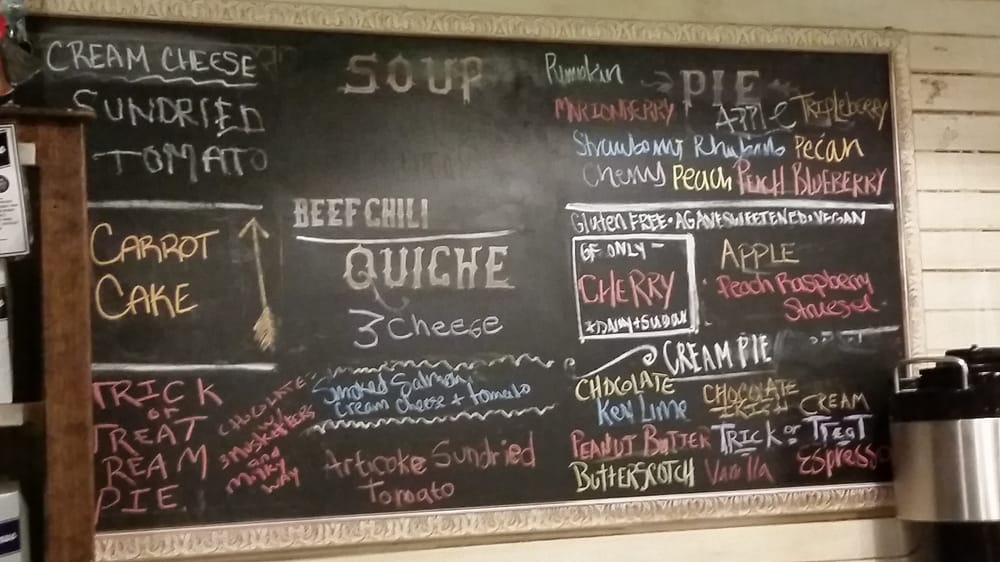 CREAM CHEESE
SUNDRIED
TOMATO
CARROT
CAKE
TRICK
or
TREAT
REAM
PIE
CHOCOLATE
W/
3 MUSKETEERS
and
Milky
WAY
SOUP
BEEF CHILI
QUICHE
3 Cheese
Smoked Salmon
Cream Cheese + tomato
Articoke Sundried
Tomato
Pumpkin
PIE
MARIONBERRY APPLE Tripleberry
Strawberry Rhubarb Pecan
Cherry Peach PEACH BLUEBERRY
Gluten FREE • AGAVE SWEETENED • VEGAN
GF ONLY -
CHERRY
APPLE
Peach Raspberry
Struesel
CREAM PIE
CHOCOLATE CHOCOLATE
Key Lime IRISH CREAM
PEANUT BUTTER TRICK or TREAT
BUTTERSCOTCH Vanilla Espresso